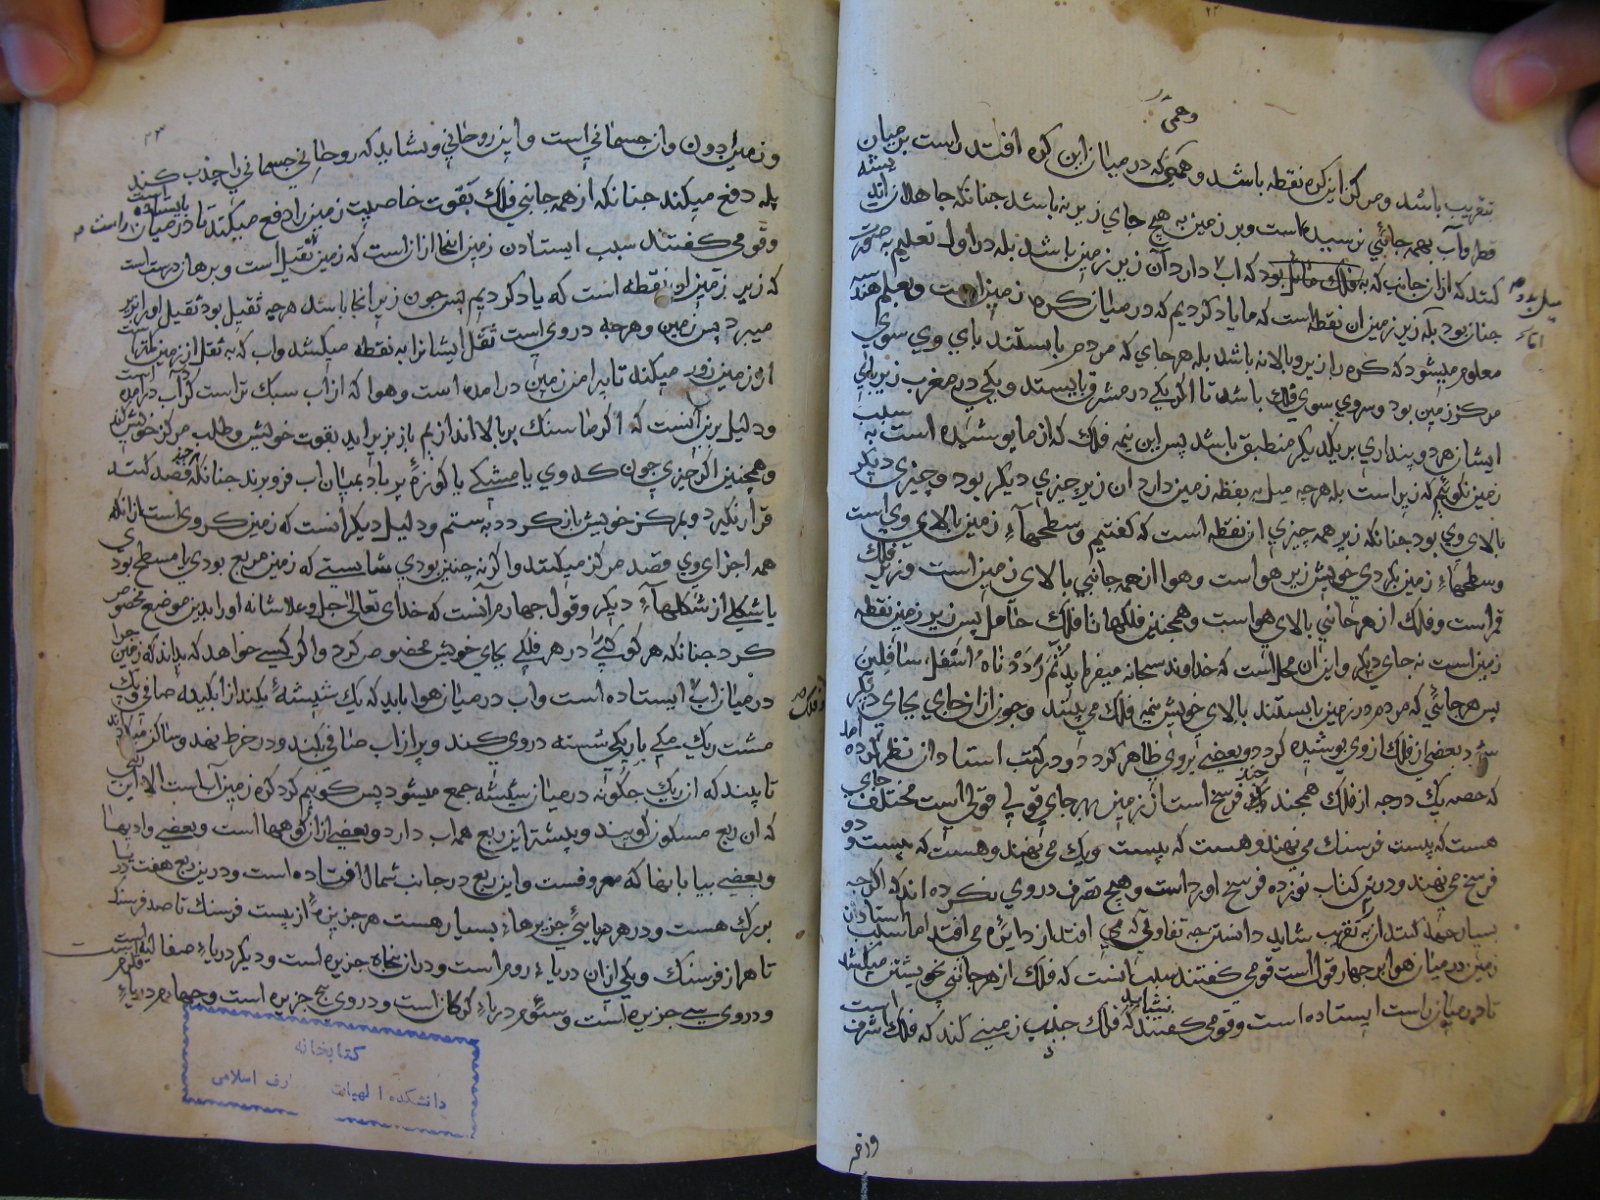 وهمی
تقریب باشد و مرکز این کره نقطه باشد وهمی که در میان این کره افتد راست بر میان
قطر و آب بهمه جانبی نرسیده است و بر زمین به هیچ جای زیرینه باشد جنانکه جاهلان
کنند که ازان جانب که به فلک مایل بود که اب دارد آن زیر زمین باشد بله در اول تعلیم به
جنان بود بله زیر زمین ان نقطه است که ما یاد کردیم که در میان کره زمین است و بعلم هندسه
معلوم میشود که کره را زیر و بالا نه باشد بله هر جای که مردم بایستند پای وی سوی
مرکز زمین بود و سر وی سوی فلک باشد تا اگر یکی در مشرق بایستد و یکی در مغرب زیر پای
ایشان هر دو پنداری بر یکدیگر منطبق باشد پس این نیمه فلک که از ما پوشیده است به سبب
زمین نکوییم که زیر است بله هرجه میل به نقطه زمین دارد ان زیر جیزی دیگر بود و چیزی دیگر
بالای وی بود جنانکه زیر همه چیزی ان نقطه است که کفتیم و سطحهاء زمین بالای وی است
و سطحهاء زمین بکردی خویش زیر هوا است و هوا از همه جانبی بالای زمین است و زیر فلک
قمر است و فلک از هر جانبی بالای هواست و همجنین فلکها تا فلک پس زیر زمین نقطه
زمین است نه جای دیگر و این ان محل است که خداوند سبحانه میفرماید ثم رددناه اسفل سافلین
پس هر جانبی که مردم در زمین بایستند بالای خویش نیمه فلک می بینند و جون ازان جای بجای دیگر
بعضی از فلک از وی پوشیده کردد و بعضی بروی ظاهر کردد و در کتب استادان نظر کرده
که حصه یک درجه از فلک همجند فرسخ است از زمین بهر جای قولی قولی است مختلف جای
هست که بیست فرسنک می نهند و هست که بیست و یک می نهند و هست که بیست و دو
فرسخ می نهند و درین کتاب نوزده فرسخ اورداست و هیچ تصرف در وی نکرده اند که اکرجه
بسیار جهد کنند از به تقریب شاید دانستن جه تفاوتی که می افتد از دایره می افتد اما سبب استادن
زمین در میان هوا بر جهار قول است قومی کفتند سبب آنست که فلک از هر جانبی بخویشتن میکشد
تا در میان راست ایستاده است و قومی کفتند نشاید که فلک جذب زمینی کند که فلک اشرف است
واز
و زمین دون و ان جسمانی است و این روحانی و نشاید که روحانی جسمانی را جذب کند
بله دفع میکند جنانکه از همه جانبی فلک بقوت خاصیت زمین را دفع میکند تا در میان راست بایستاده است
و قومی کفتند سبب ایستادن زمین انجا ازان است که زمین ثقیل است و برهان درست است
که زیر زمین ان نقطه است که یاد کردیم پس جون زیر انجا باشد هرجه ثقیل بود ثقیل او را بزیر
میبرد پس زمین و هرجه در وی است ثقل ایشان را به نقطه میکشد و اب که به ثقل از زمین کمتر است
از زمین زور میکند تا پیرامن زمین درامده است و هوا که از اب سبک تر است کرد آب درامده است
و دلیل برین آنست که اکر ما سنک بر بالا اندازیم باز بزیر اید بقوت خویش و طلب مرکز خویش کند
و همجنین اکر جیزی جون کدوی یا مشکی یا کوزهٔ پر باد بمیان اب فرو برند جنانکه قصد کنند
قرار نکیرد و بمرکز خویش باز کردد به ستم و دلیل دیکر انست که زمین کروی است از انکه
همه اجزای وی قصد مرکز میکنند و اکر نه جنین بودی شایستی که زمین مربع بودی یا مسطح بودی
یا شکلی از شکلهاء دیکر و قول جهارم آنست که خدای تعالی جل و علا شانه او را بدین موضع مخصوص
کرد جنانکه هر کوکبی را در هر فلکی بجای خویش مخصوص کرد و اکر کسی خواهد که بداند که زمین جرا
در میان اب ایستاده است و اب در میان هوا باید که یک شیشهٔ بکیند از ابکینه صافی و یک
مشت ریک پاکی شسته در وی کند و پر از اب صافی کند و در خرط نهد و ساکن
تا بیند که از ریک جکونه در میان شیشه جمع میشود پس کوییم کرد کره زمین آبست الا این
که ان ربع مسکون کویند و بیشتر این ربع هم اب دارد و بعضی ازان کوهها است و بعضی وادیها
و بعضی بیابانها که معروفست و این ربع در جانب شمال افتاده است و درین ربع هفت دریا
بزرک هست و در هر دریایی جزیرها بسیار هست هر جزیرهٔ از بیست فرسنک تا صد فرسنک
تا هزار فرسنک و یکی ازان دریاء روم است و دران پنجاه جزیره است و دیکر دریاء صقالبه است
و در وی سی جزیره است و سوم دریاء کرکان است و در وی پنج جزیره است و جهارم دریاء قلزم
کتابخانه
دانشکده الهیات ارف اسلامی